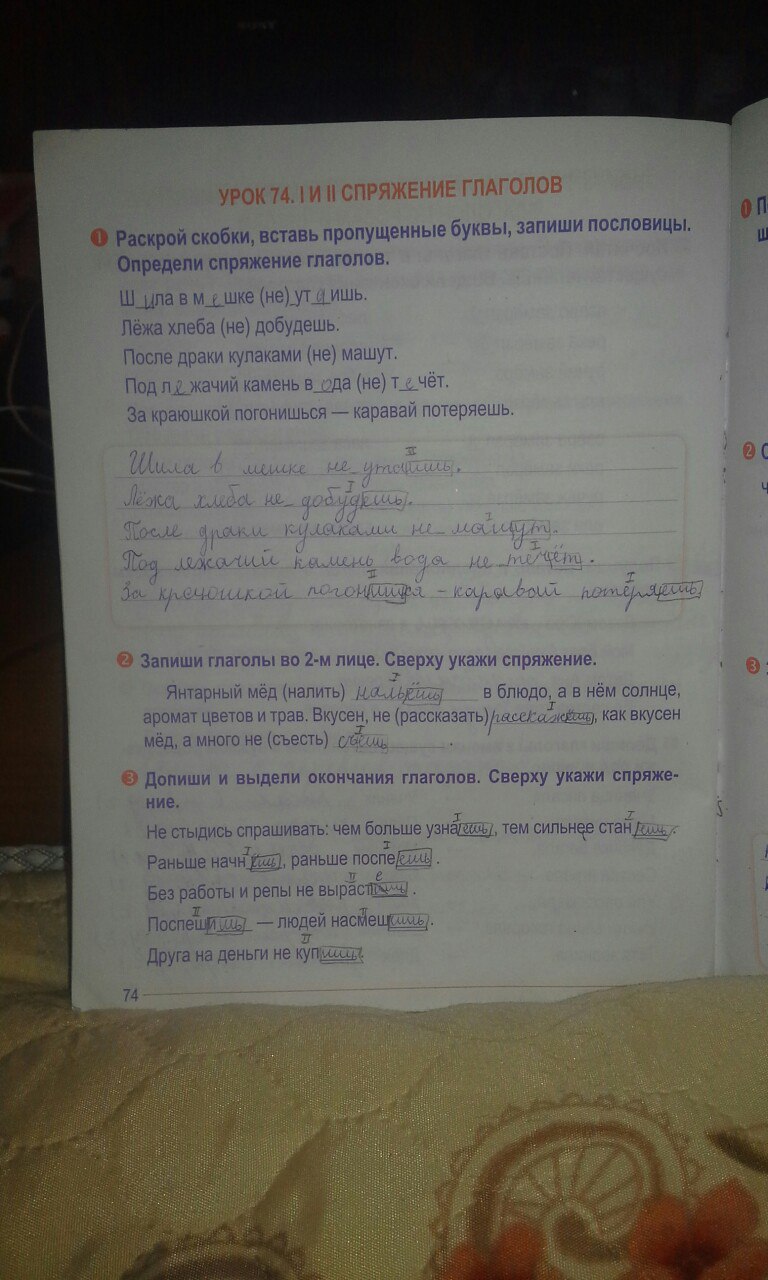 УРОК 74. I И II СПРЯЖЕНИЕ ГЛАГОЛОВ
1 Раскрой скобки, вставь пропущенные буквы, запиши пословицы.
Определи спряжение глаголов.
Шила в мешке (не) утаишь.
Лёжа хлеба (не) добудешь.
После драки кулаками (не) машут.
Под лежачий камень вода (не) течёт.
За краюшкой погонишься — каравай потеряешь.
II
Шила в мешке не утаишь.
I
Лёжа хлеба не добудешь.
I
После драки кулаками не машут.
I
Под лежачий камень вода не течёт.
II I
За погонишься - каравай потеряешь
2 Запиши глаголы во 2-м лице. Сверху укажи спряжение.
I
Янтарный мёд (налить) нальёшь в блюдо, а в нём солнце,
I
аромат цветов и трав. Вкусен, не (рассказать) расскажешь, как вкусен
I
мёд, а много не (съесть) съешь.
3 Допиши и выдели окончания глаголов. Сверху укажи спряже-
ние.
I I
Не стыдись спрашивать: чем больше узнаешь, тем сильнее станешь.
I I
Раньше начнёшь, раньше поспеешь.
II е
Без работы и репы не вырастишь.
II II
Поспешишь — людей насмешишь.
II
Друга на деньги не купишь.
74
1 П
ш
2 С
ч
3